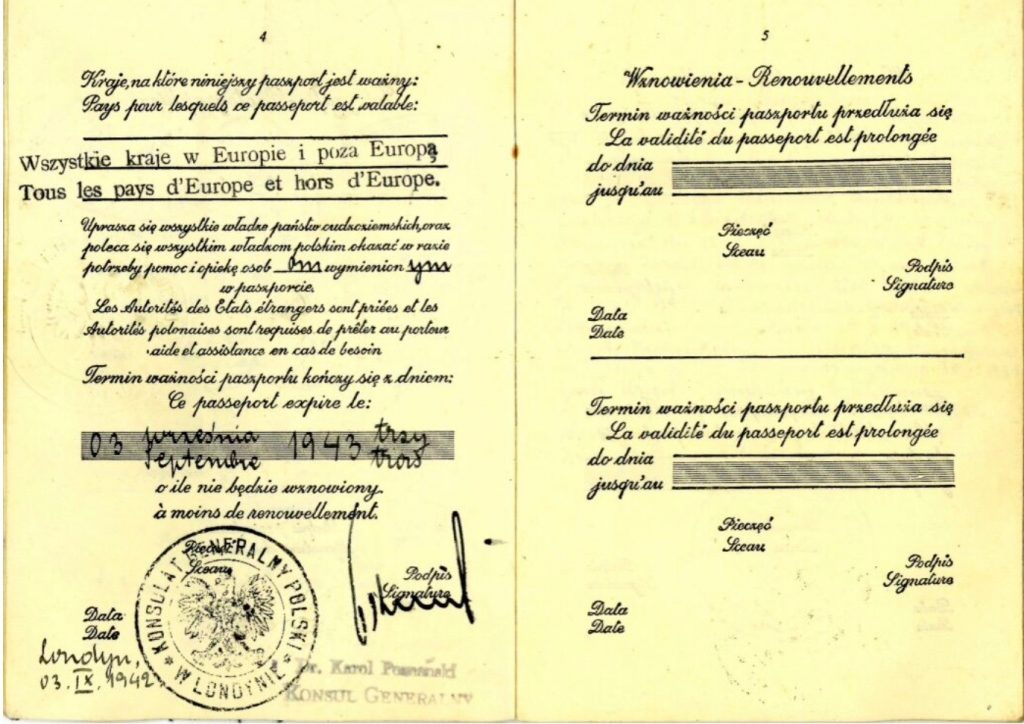 4
Kraje, na które niniejszy paszport jest ważny:
Pays pour lesquels ce passeport est valable:
Wszystkie kraje w Europie i poza Europą
Tous les pays d'Europe et hors d'Europe.
Uprasza się wszystkie władze państw cudzoziemskich, oraz
poleca się wszystkim władzom polskim okazać w razie
potrzeby pomoc i opiekę osob om wymienion ym
w paszporcie.
Les Autorités des Etats étrangers sont priées et les
Autorités polonaises sont requises de prêter au porteur
aide et assistance en cas de besoin
Termin ważności paszportu kończy się z dniem:
Ce passeport expire le:
03 września 1943 trzy
Septembre trois
o ile nie będzie wznowiony.
à moins de renouvellement.
Pieczęć
Sceau
Podpis
Signature
KONSULAT GENERALNY POLSKI
W LONDYNIE
Data
Date
Londyn,
03.IX.1942
Dr. Karol Poznański
KONSUL GENERALNY
5
Wznowienia - Renouvellements
Termin ważności paszportu przedłuża się
La validité du passeport est prolongée
do dnia
jusqu'au
Pieczęć
Sceau
Podpis
Signature
Data
Date
Termin ważności paszportu przedłuża się
La validité du passeport est prolongée
do dnia
jusqu'au
Pieczęć
Sceau
Podpis
Signature
Data
Date